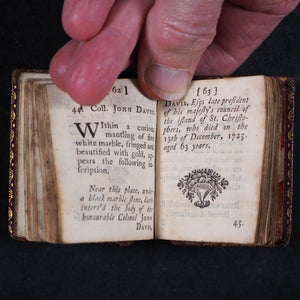 62 ]
44 Coll. JOHN DAVIS.
WIthin a curious
mantling of fine
white marble, fringed and
beautified with gold, ap-
pears the following in-
scription.
Near this place, under
a black marble stone, lieth
interr'd the body of the
honourable Colonel JOHN
DAVIS,
[ 63 ]
DAVIS, Esq; late president
of his majesty's council of
the island of St. Christo-
phers, who died on the
13th of December, 1725.
aged 63 years.
45.